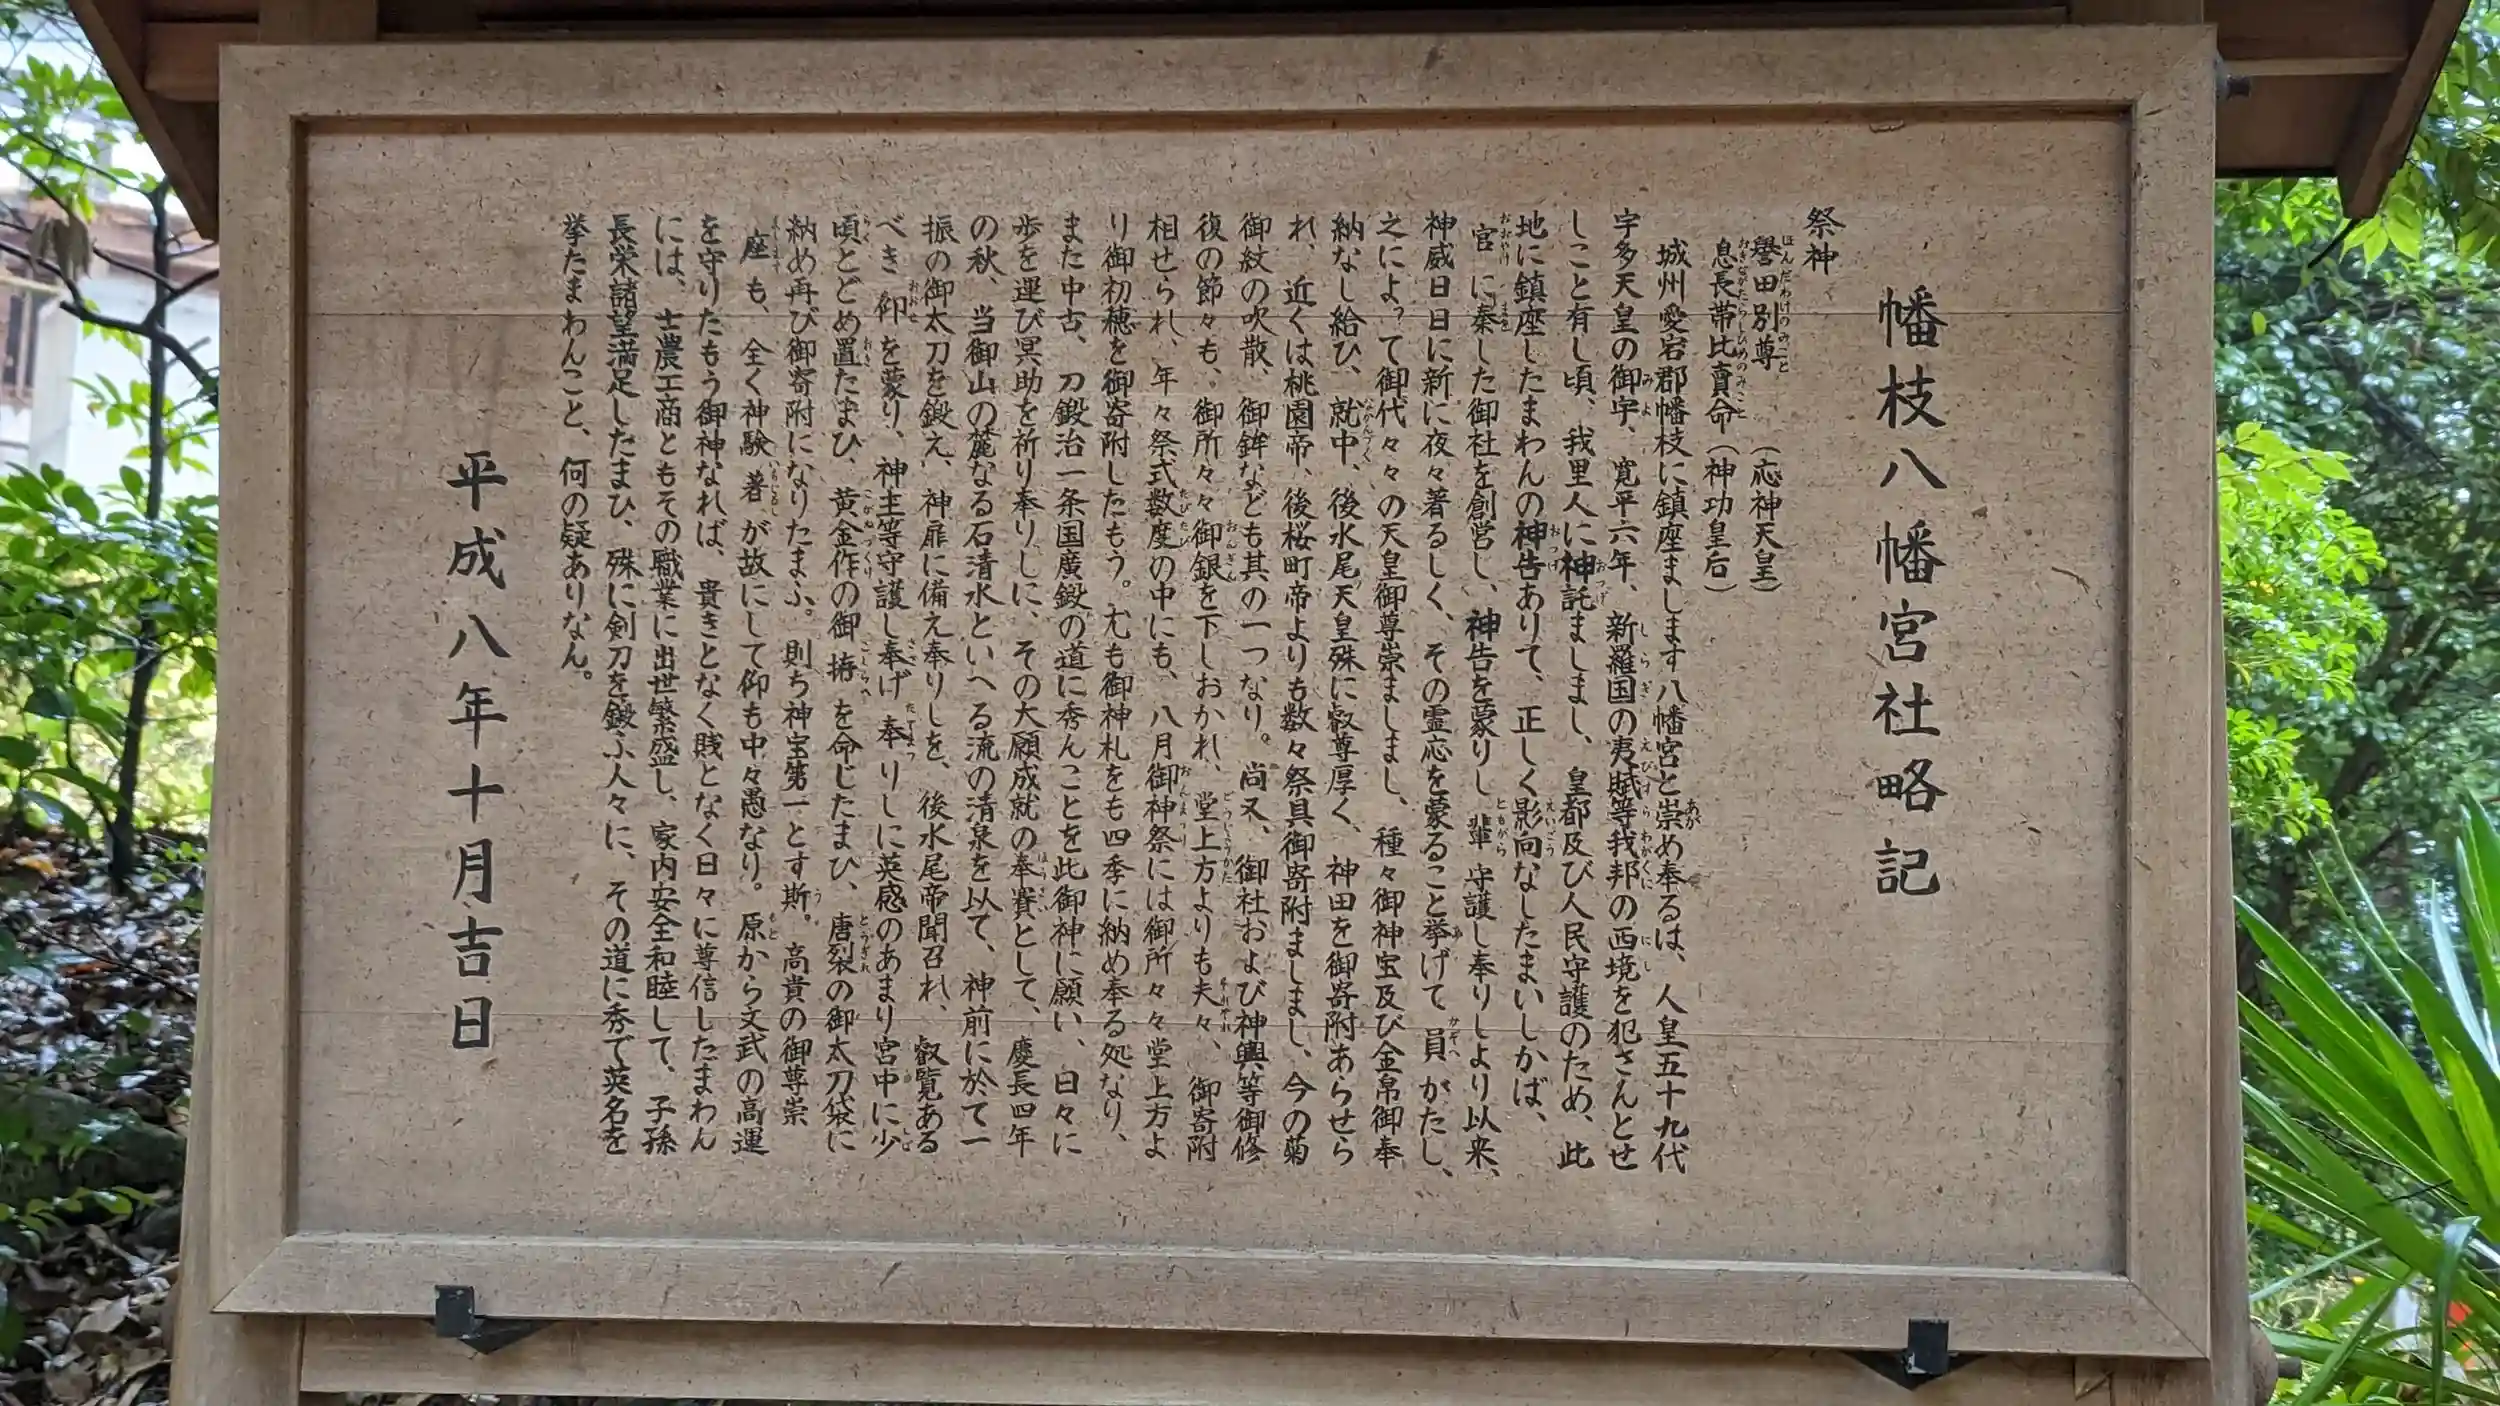 幡枝八幡宮社略記
祭神
譽田別尊　（応神天皇）
息長帯比賣命（神功皇后）
城州愛宕郡幡枝に鎮座まします八幡宮と崇め奉るは、人皇五十九代
宇多天皇の御宇、寛平六年、新羅国の夷賊等我邦の西境を犯さんとせ
しこと有し頃、我里人に神託ましまし、皇都及び人民守護のため、此
地に鎮座したまわんの神告ありて、正しく影向なしたまいしかば、
官に奏した御社を創営し、神告を蒙りし輩守護し奉りしより以来、
神威日日に新に夜々著るしく、その霊応を蒙ること挙げて員がたし、
之によって御代々々の天皇御尊崇ましまし、種々御神宝及び金帛御奉
納なし給ひ、就中、後水尾天皇殊に叡尊厚く、神田を御寄附あらせら
れ、近くは桃園帝、後桜町帝よりも数々祭具御寄附ましまし、今の菊
御紋の吹散、御鉾なども其の一つなり。尚又、御社および神輿等御修
復の節々も、御所々々御銀を下しおかれ、堂上方よりも夫々、御寄附
相せられ、年々祭式数度の中にも、八月御神祭には御所々々堂上方よ
り御初穂を御寄附したもう。尤も御神札をも四季に納め奉る処なり、
また中古、刀鍛冶一条国廣鍛の道に秀んことを此御神に願い、日々に
歩を運び冥助を祈り奉りしに、その大願成就の奉賽として、慶長四年
の秋、当御山の麓なる石清水といへる流の清泉を以て、神前に於て一
振の御太刀を鍛え、神扉に備え奉りしを、後水尾帝聞召れ、叡覧ある
べき仰を蒙り、神主等守護し奉げ奉りしに英感のあまり宮中に少
頃とどめ置たまひ、黄金作の御拵を命じたまひ、唐裂の御太刀袋に
納め再び御寄附になりたまふ。則ち神宝第一とす斯。高貴の御尊崇
座も、全く神験著が故にして仰も中々愚なり。原から文武の高運
を守りたもう御神なれば、貴きとなく賎となく日々に尊信したまわん
には、士農工商ともその職業に出世繁盛し、家内安全和睦して、子孫
長栄諸望満足したまひ、殊に剣刀を鍛ふ人々に、その道に秀で英名を
挙たまわんこと、何の疑ありなん。
平成八年十月吉日